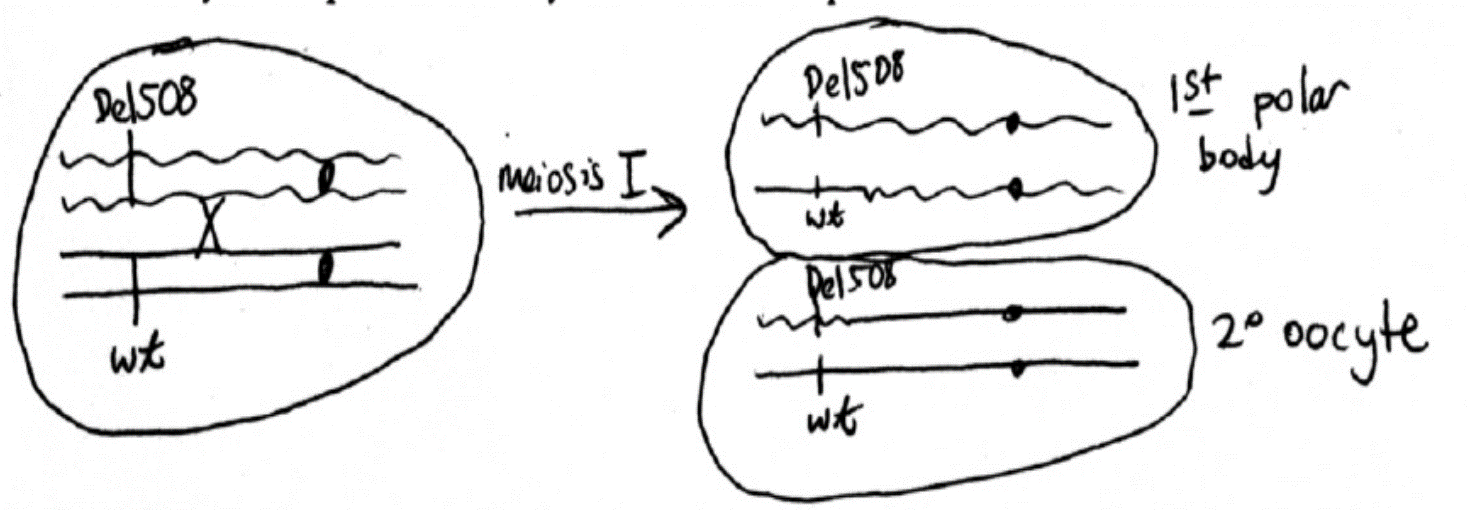 Del508
wt
meiosis I
Del508
wt
1st polar
body
Del508
wt
2° oocyte